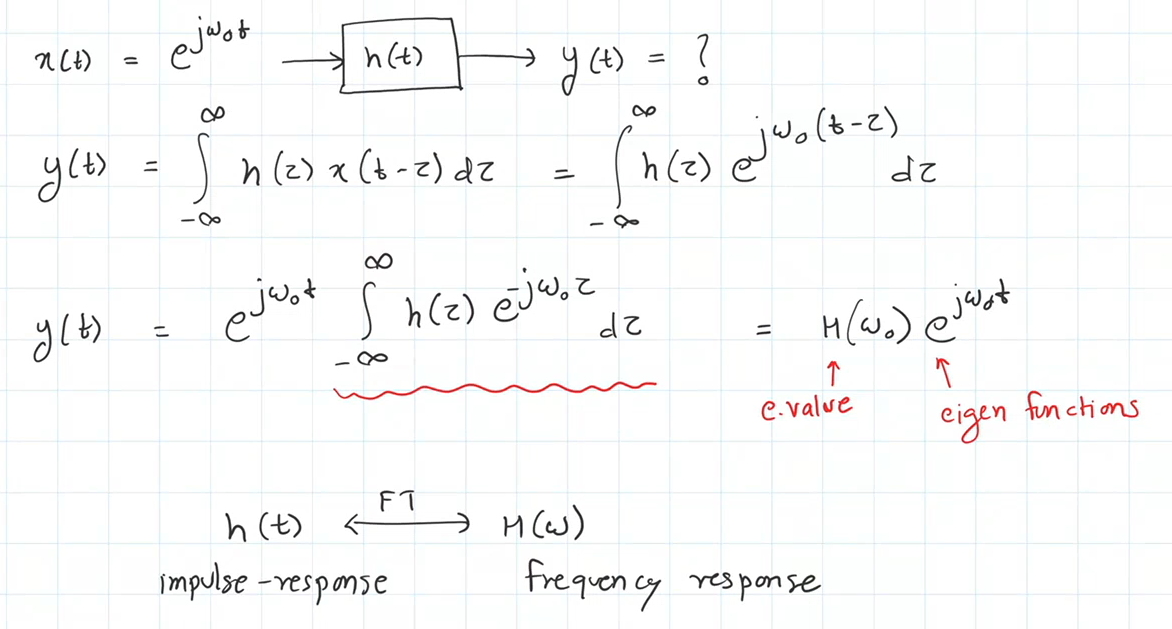 x(t) = e^{jω₀t} → h(t) → y(t) = ?
y(t) = ∫_{-∞}^{∞} h(τ) x(t-τ) dτ = ∫_{-∞}^{∞} h(τ) e^{jω₀(t-τ)} dτ
y(t) = e^{jω₀t} ∫_{-∞}^{∞} h(τ) e^{-jω₀τ} dτ = H(ω₀) e^{jω₀t}
↑ ↑
e.value eigen functions
FT
h(t) ⟷ H(ω)
impulse-response frequency response